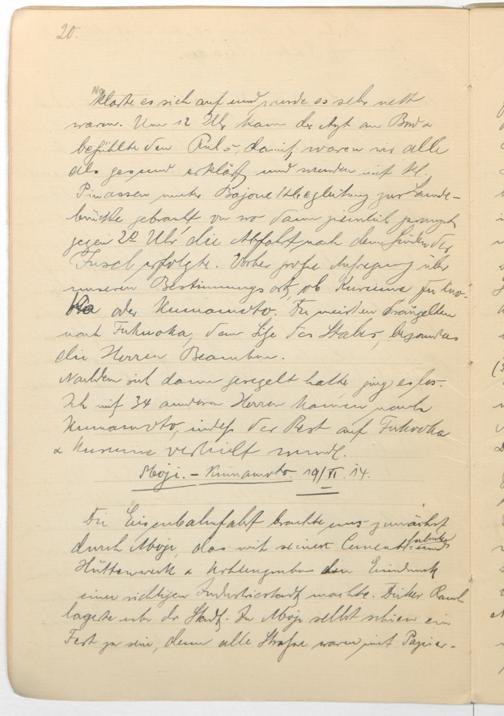 20.
klarte es sich auf und wurde es sehr nett
warm. Um 12 Uhr kam der Arzt an Bord &
befühlte den Puls. Damit waren wir alle
als gesund erklärt und wurden mit kl.
Pinassen unter Bajonettbegleitung zur Lande-
brücke gebracht von wo dann ziemlich prompt
gegen 2 Uhr die Abfahrt nach dem Süden der
Insel erfolgte. Vorher große Aufregung über
unseren Bestimmungsort, ob Kurume, Fukuo-
ka oder Kumamoto. Die meisten drängelten
nach Fukuoka, dem Sitz des Stabes, besonders
die Herren Beamten.
Nachdem sich dann geregelt hatte ging es los.
Ich mit 34 anderen Herren kamen nach
Kumamoto, indeß der Rest auf Fukuoka
& Kurume verteilt wurde.
Moji. - Kumamoto 19/XI. 14.
Die Eisenbahnfahrt brachte uns zunächst
durch Moji, das mit seinen Cementfabriken und
Hüttenwerk & Kohlengruben den Eindruck
einer richtigen Industriestadt machte. Dicker Rauch
lagerte über der Stadt. In Moji selbst schien ein
Fest zu sein, denn alle Straße waren mit Papier-